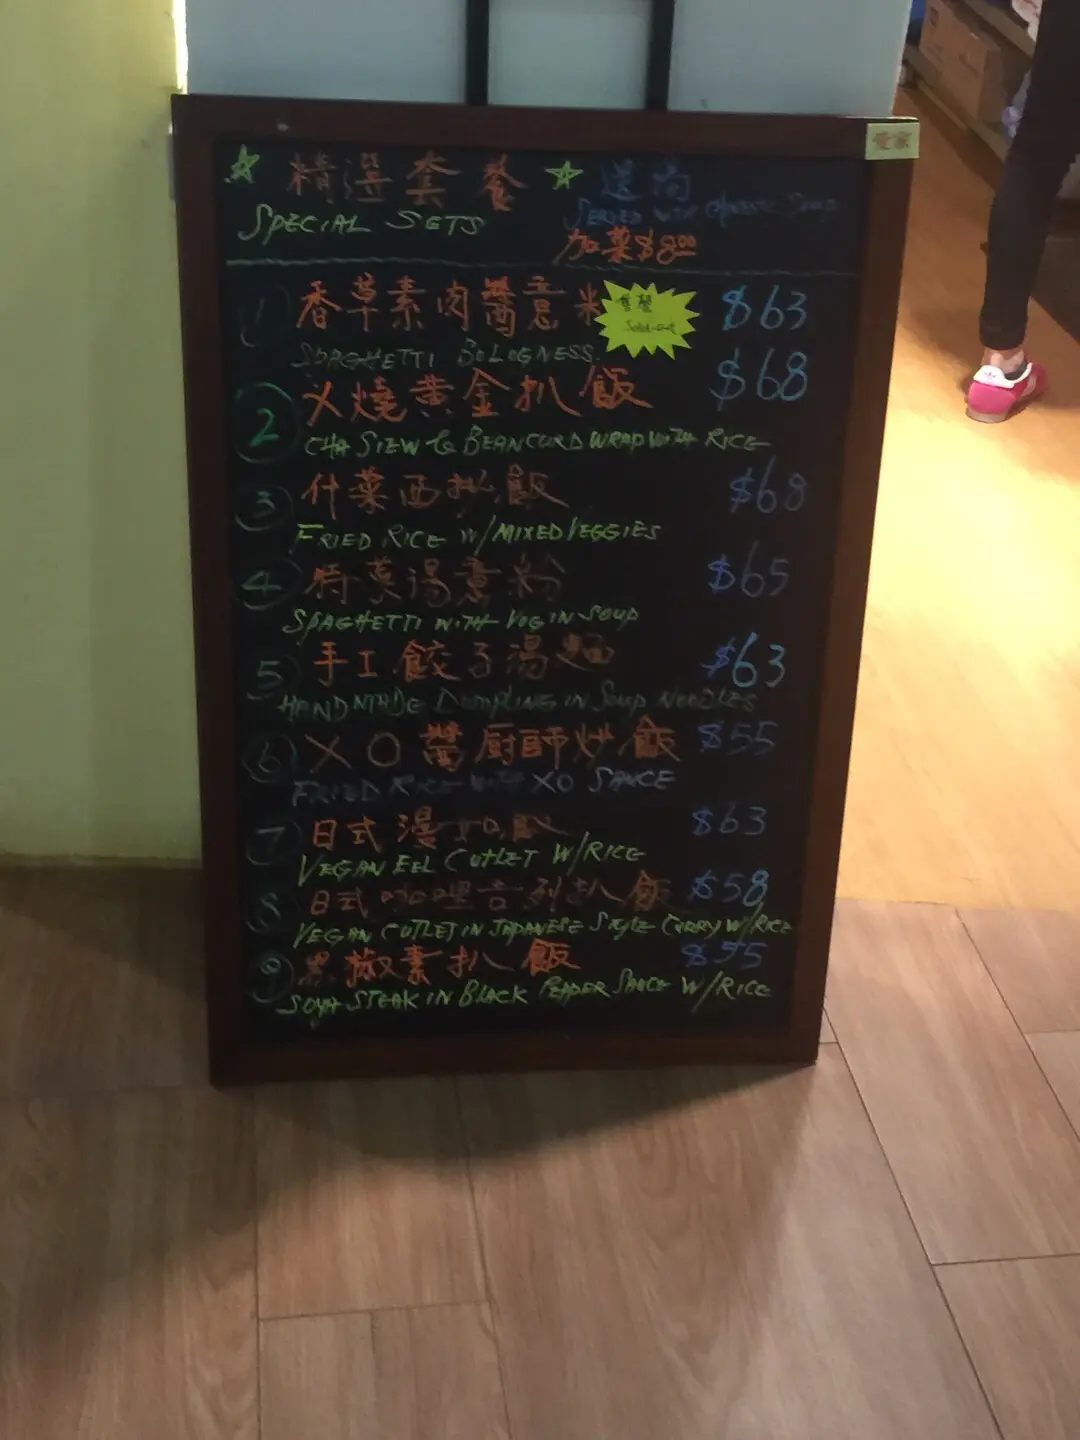 愛家
精選套餐
SPECIAL SETS
送湯
SERVED WITH CHINESE SOUP
加菜$8.00
1 香草素肉醬意粉 $63
售罄
Sold-out
SPAGHETTI BOLOGNESS
2 乂燒黄金扒飯 $68
CHA SIEW & BEANCURD WRAP WITH RICE
3 什菜西炒飯 $68
FRIED RICE W/MIXED VEGGIES
4 湯意粉 $65
SPAGHETTI WITH VEG IN SOUP
5 手工餃子湯麵 $63
HANDMADE DUMPLING IN SOUP NOODLES
6 XO醬廚師炒飯 $55
FRIED RICE WITH XO SAUCE
7 日式 飯 $63
VEGAN EEL CUTLET W/RICE
8 日式咖哩吉列扒飯 $58
VEGAN CUTLET IN JAPANESE STYLE CURRY W/RICE
9 黑椒素扒飯 $55
SOYA STEAK IN BLACK PEPPER SAUCE W/RICE